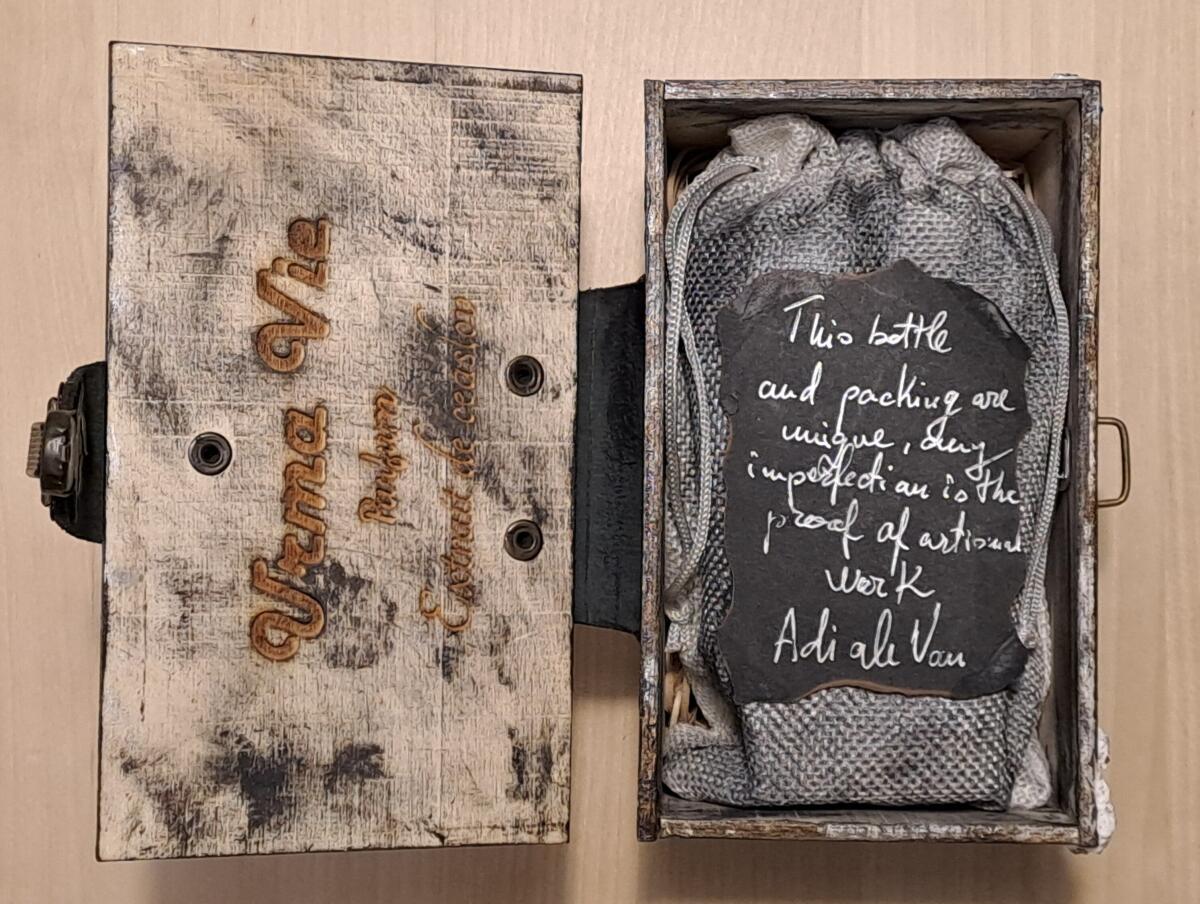 Urma Vie
Parfum
Extrait de ceaslov
This bottle
and packing are
unique, any
imperfection is the
proof of artisanal
work
Adi ale Van